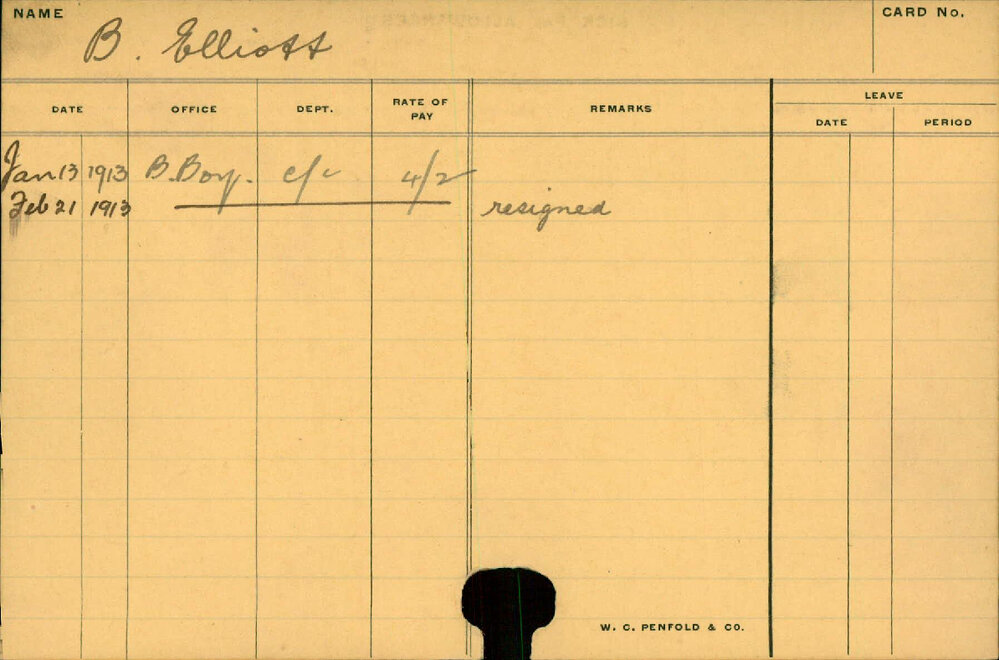 NAME
B. Elliott
CARD No.
DATE OFFICE DEPT. RATE OF PAY REMARKS LEAVE
DATE PERIOD
Jan 13 1913 B. Boy. c/c 4/2
Feb 21 1913 resigned
W. C. PENFOLD & CO.